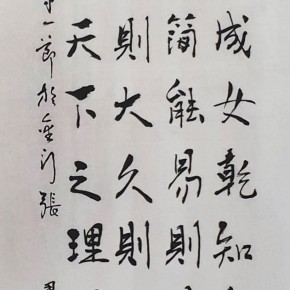 成女乾知
簡能易則
則大久則
天下之理
一節於
張